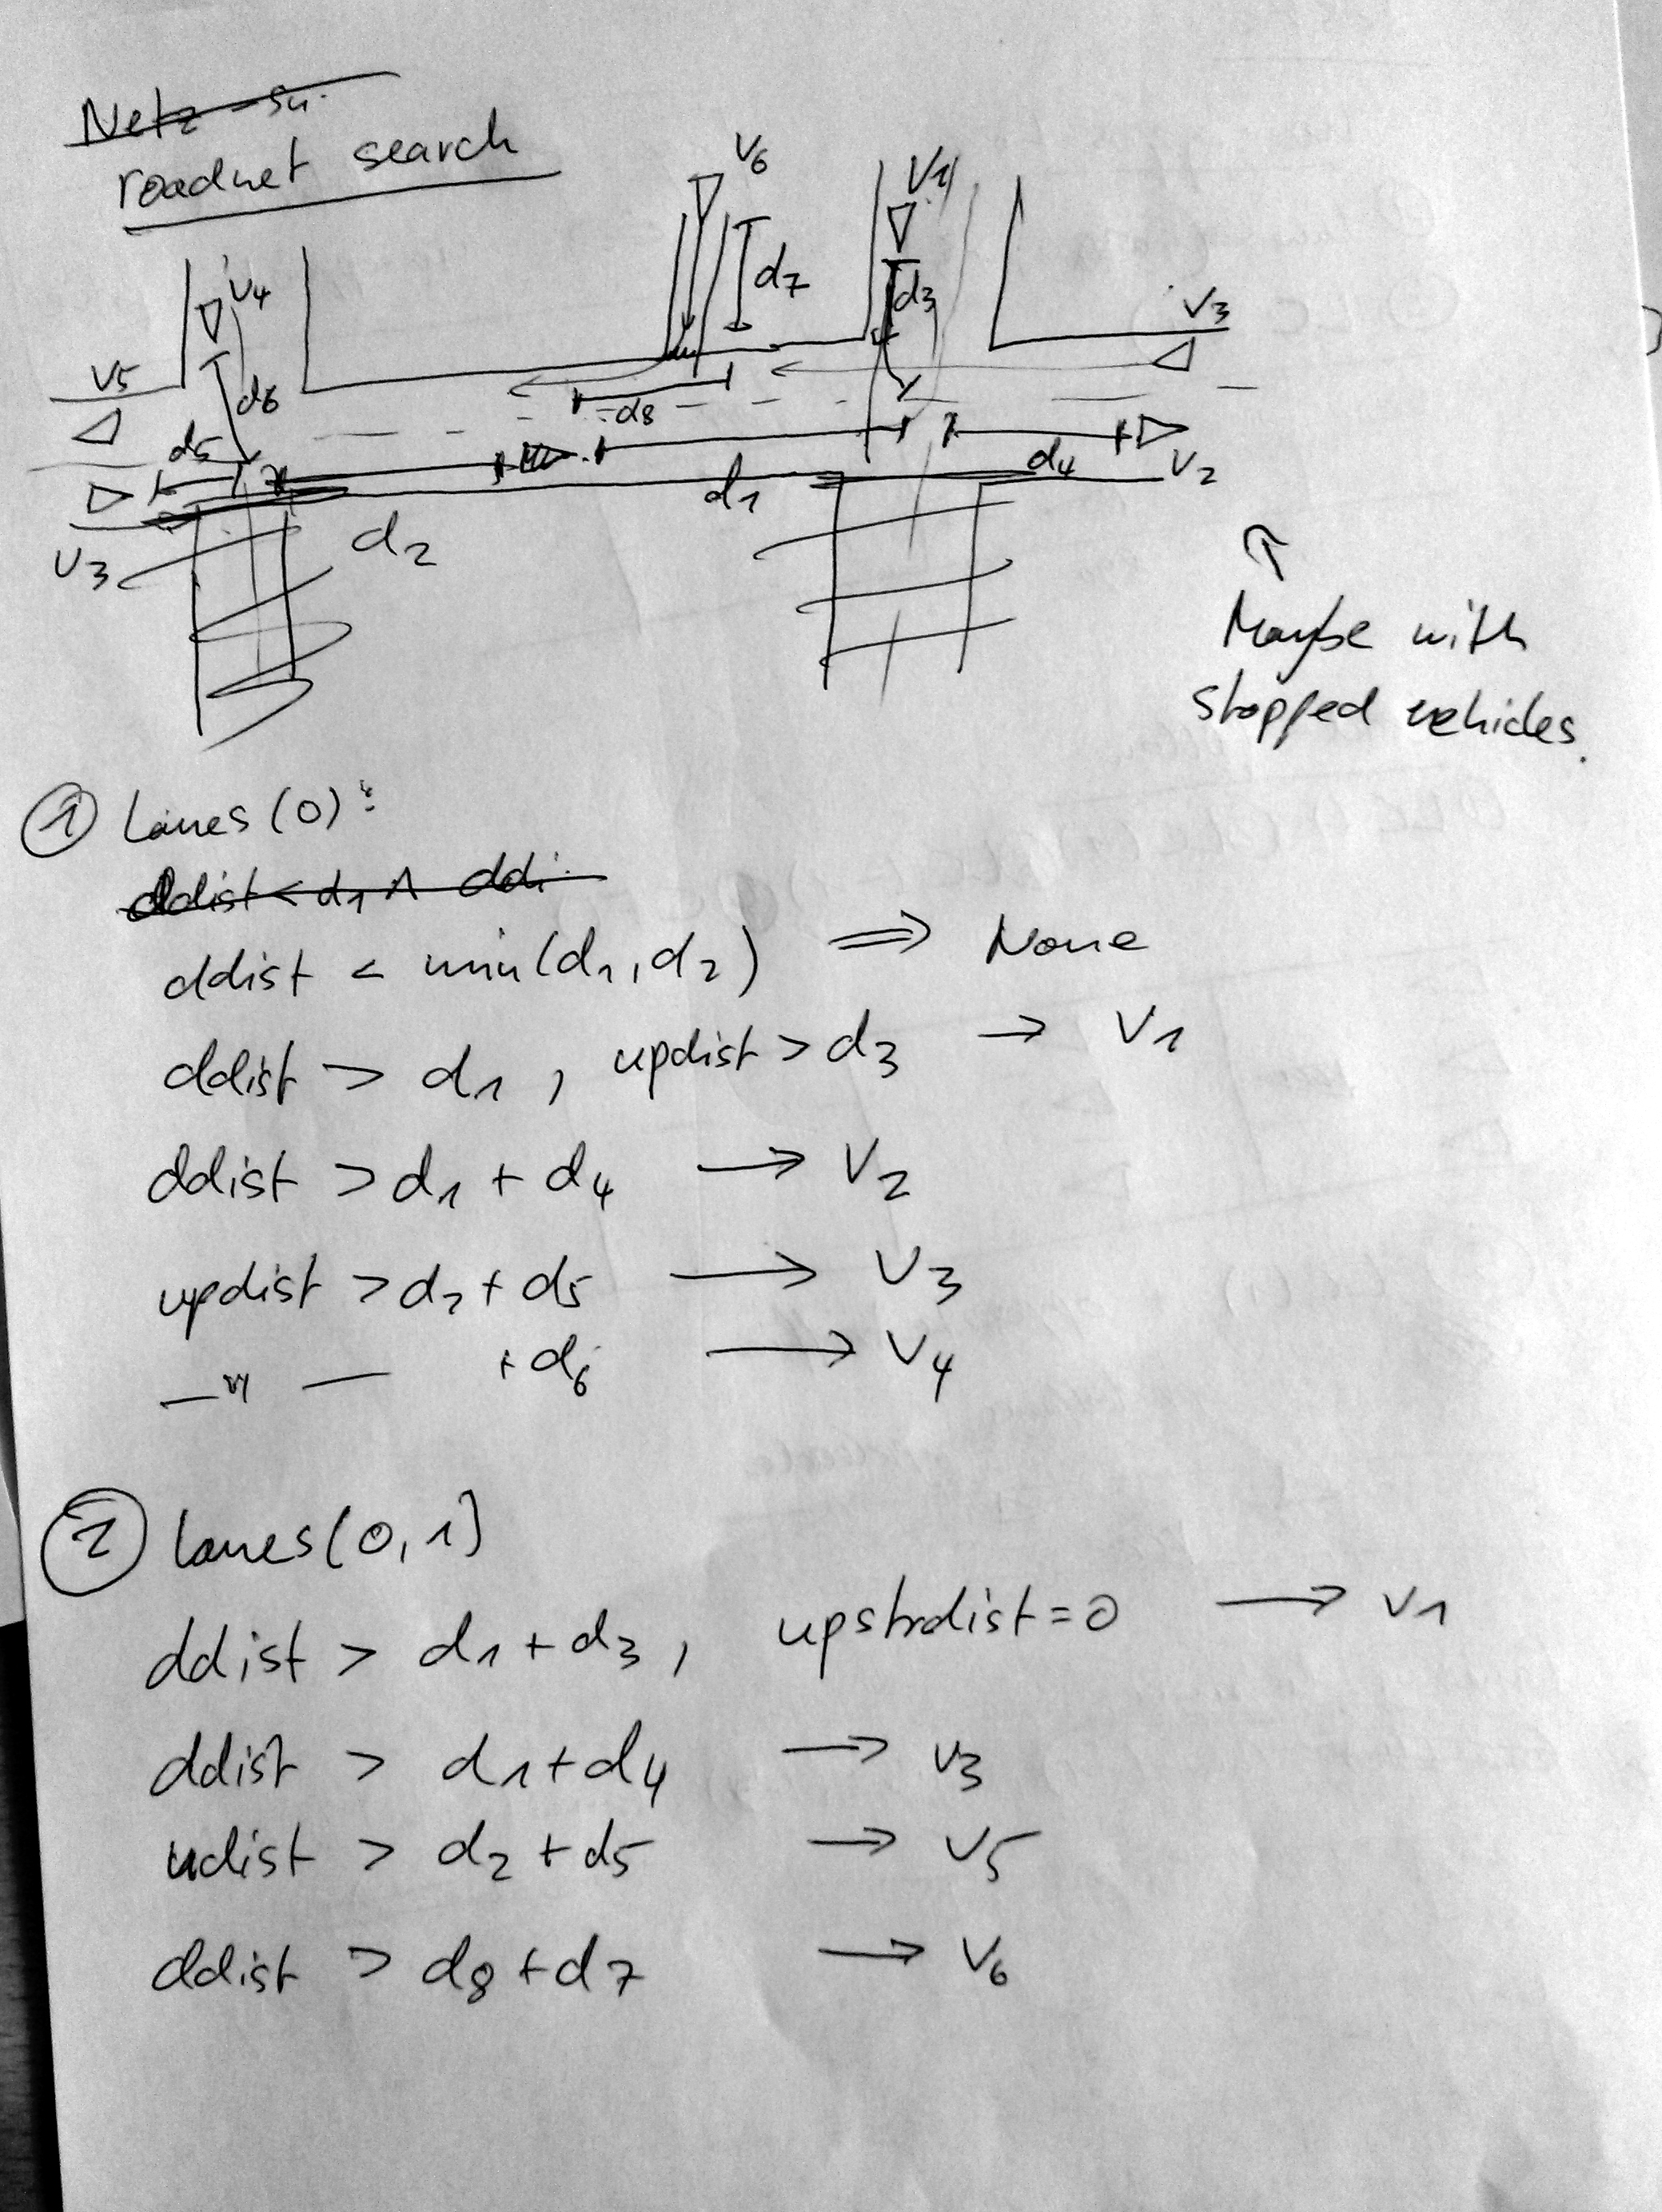 Netz-su.
roadnet search
V6
V1
V4
d7
d3
V3
V5
d6
d8
d5
d4
V2
d1
d2
V3
Maybe with
stopped vehicles.
① Lanes (0):
ddist < d1 ∧ ddi.
ddist < min(d1, d2) ⇒ None
ddist > d1 , updist > d3 → V1
ddist > d1 + d4 → V2
updist > d2 + d5 → V3
—"— + d6 → V4
② lanes(0,1)
ddist > d1 + d3 , upstrdist = 0 → V1
ddist > d1 + d4 → V3
udist > d2 + d5 → V5
ddist > d8 + d7 → V6